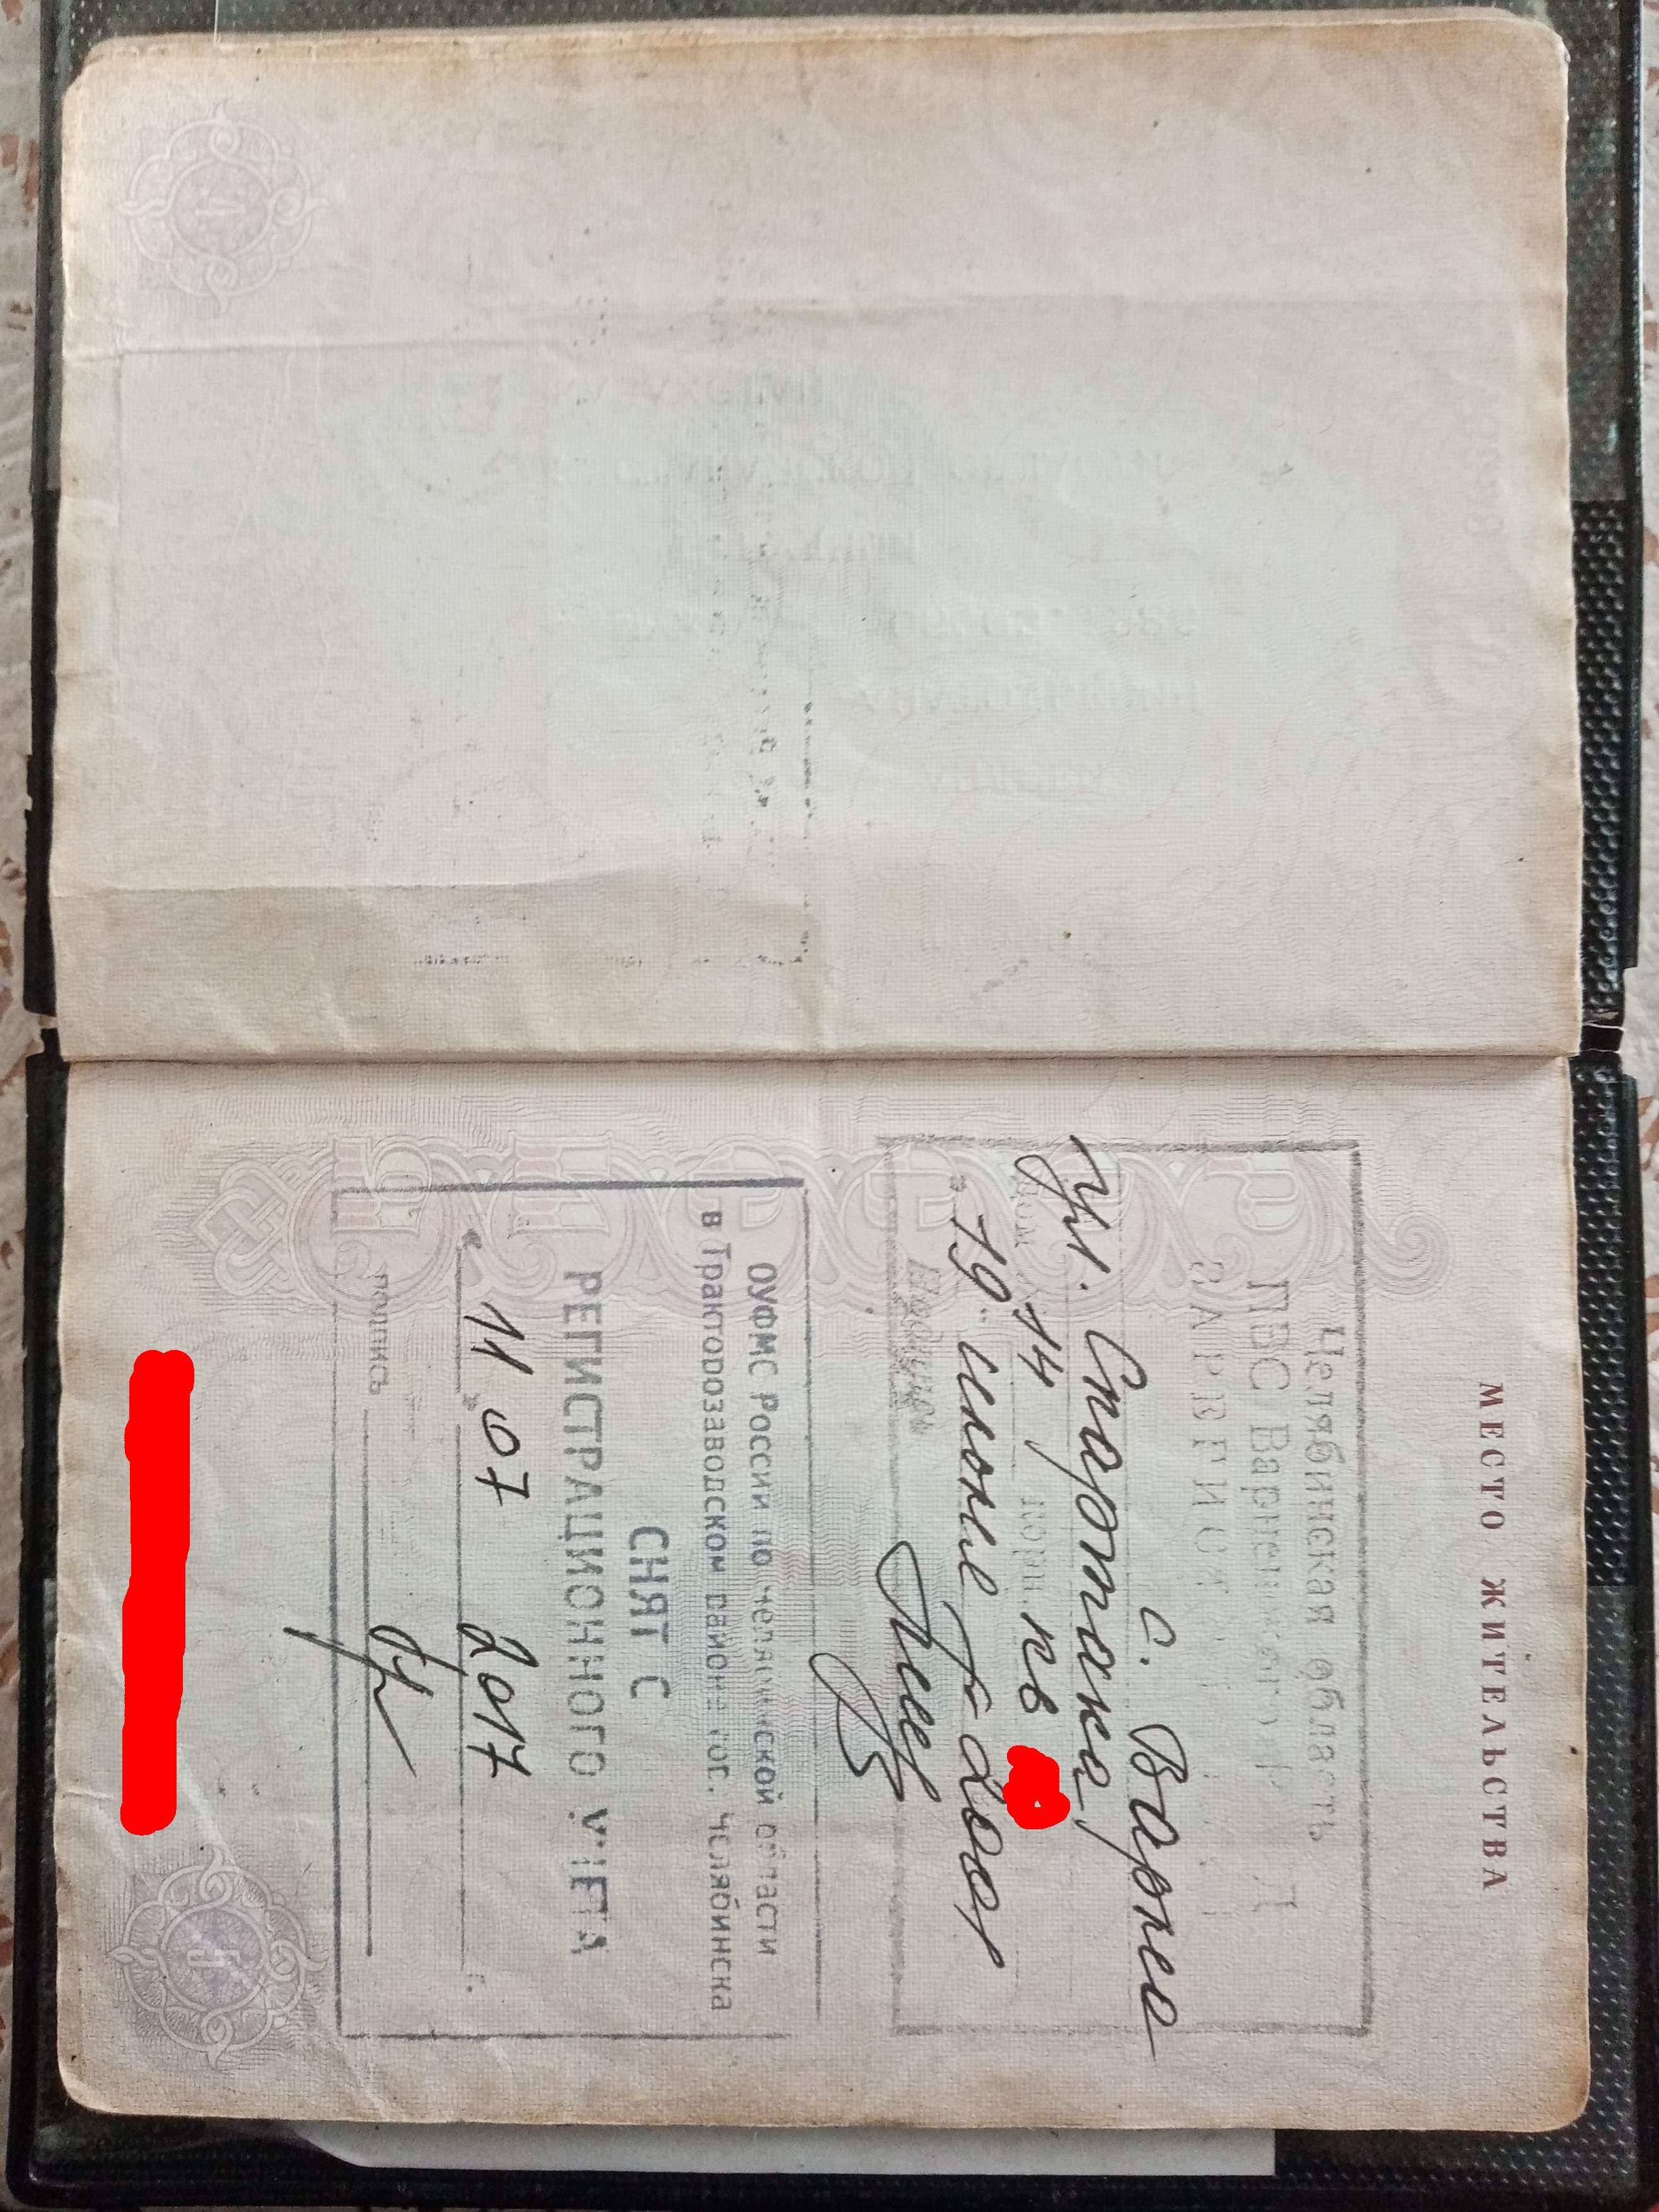 МЕСТО ЖИТЕЛЬСТВА
Челябинская область
ПВС Варненского РОВД
ЗАРЕГИСТ
с. Варна
ул. Спартака,
дом 14 корп. кв
"19" июня 2002
Подпись
ОУФМС России по Челябинской области
в Тракторозаводском районе гор. Челябинска
СНЯТ С
РЕГИСТРАЦИОННОГО УЧЕТА
« 11 » 07 2017 г.
подпись